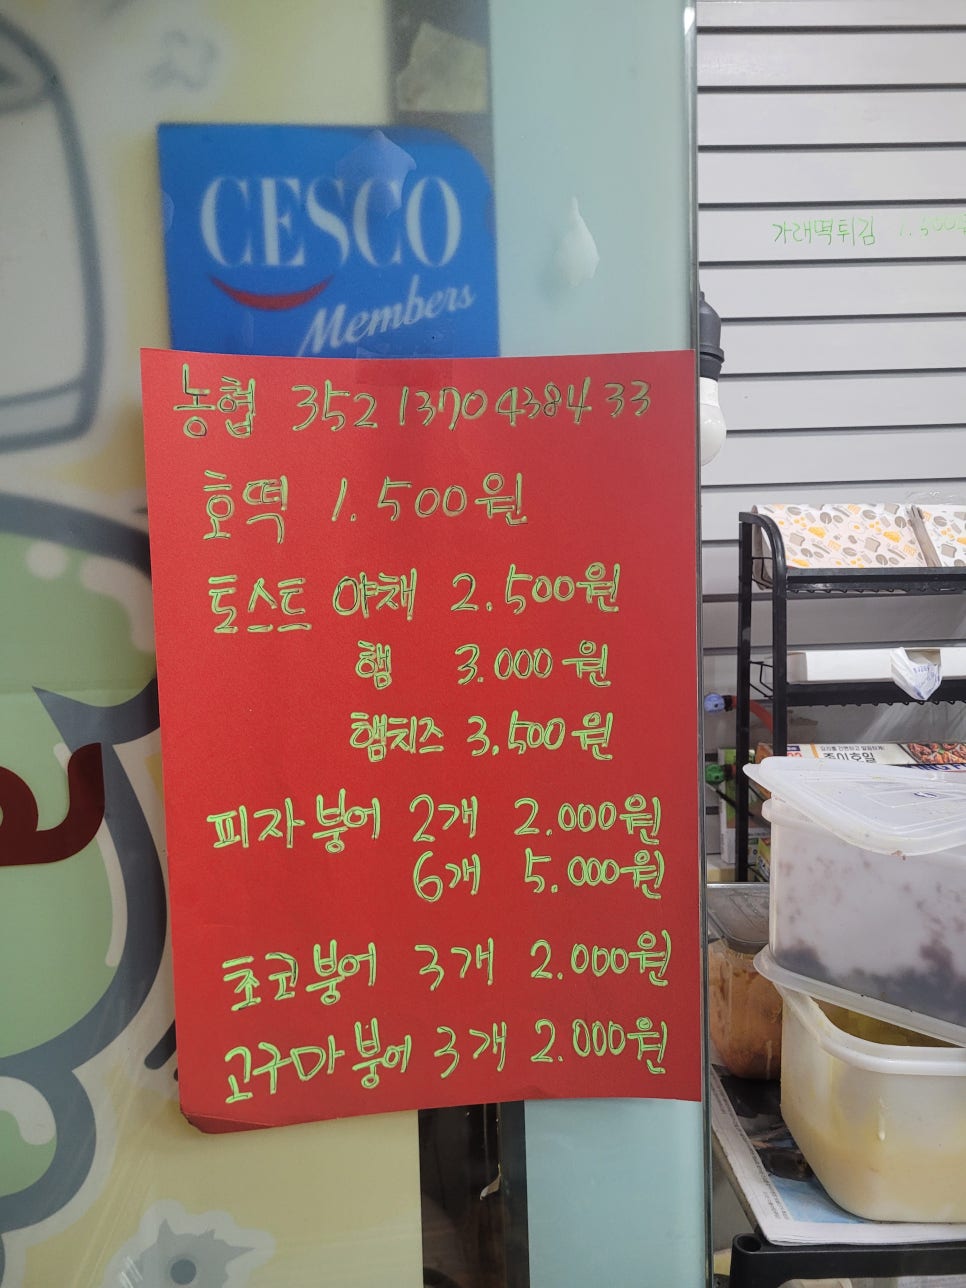 CESCO
Members
가래떡튀김 1.500원
농협 352 1370 4384 33
호떡 1.500원
토스트 야채 2.500원
햄 3.000원
햄치즈 3.500원
피자붕어 2개 2.000원
6개 5.000원
초코붕어 3개 2.000원
고구마붕어 3개 2.000원
종이호일